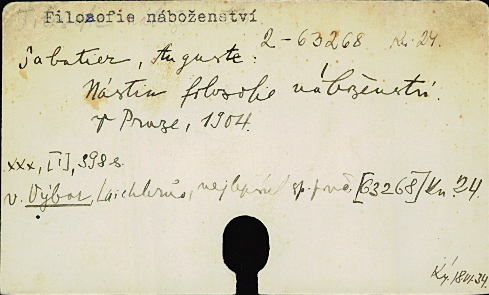 Filozofie náboženství
2-63268 Kn. 24.
Sabatier, Auguste:
Nástin filosofie náboženství.
V Praze, 1904.
xxx, [I], 398 s.
v. Výbor, Laichterův, nejlepší sp. [63268] Kn. 24.